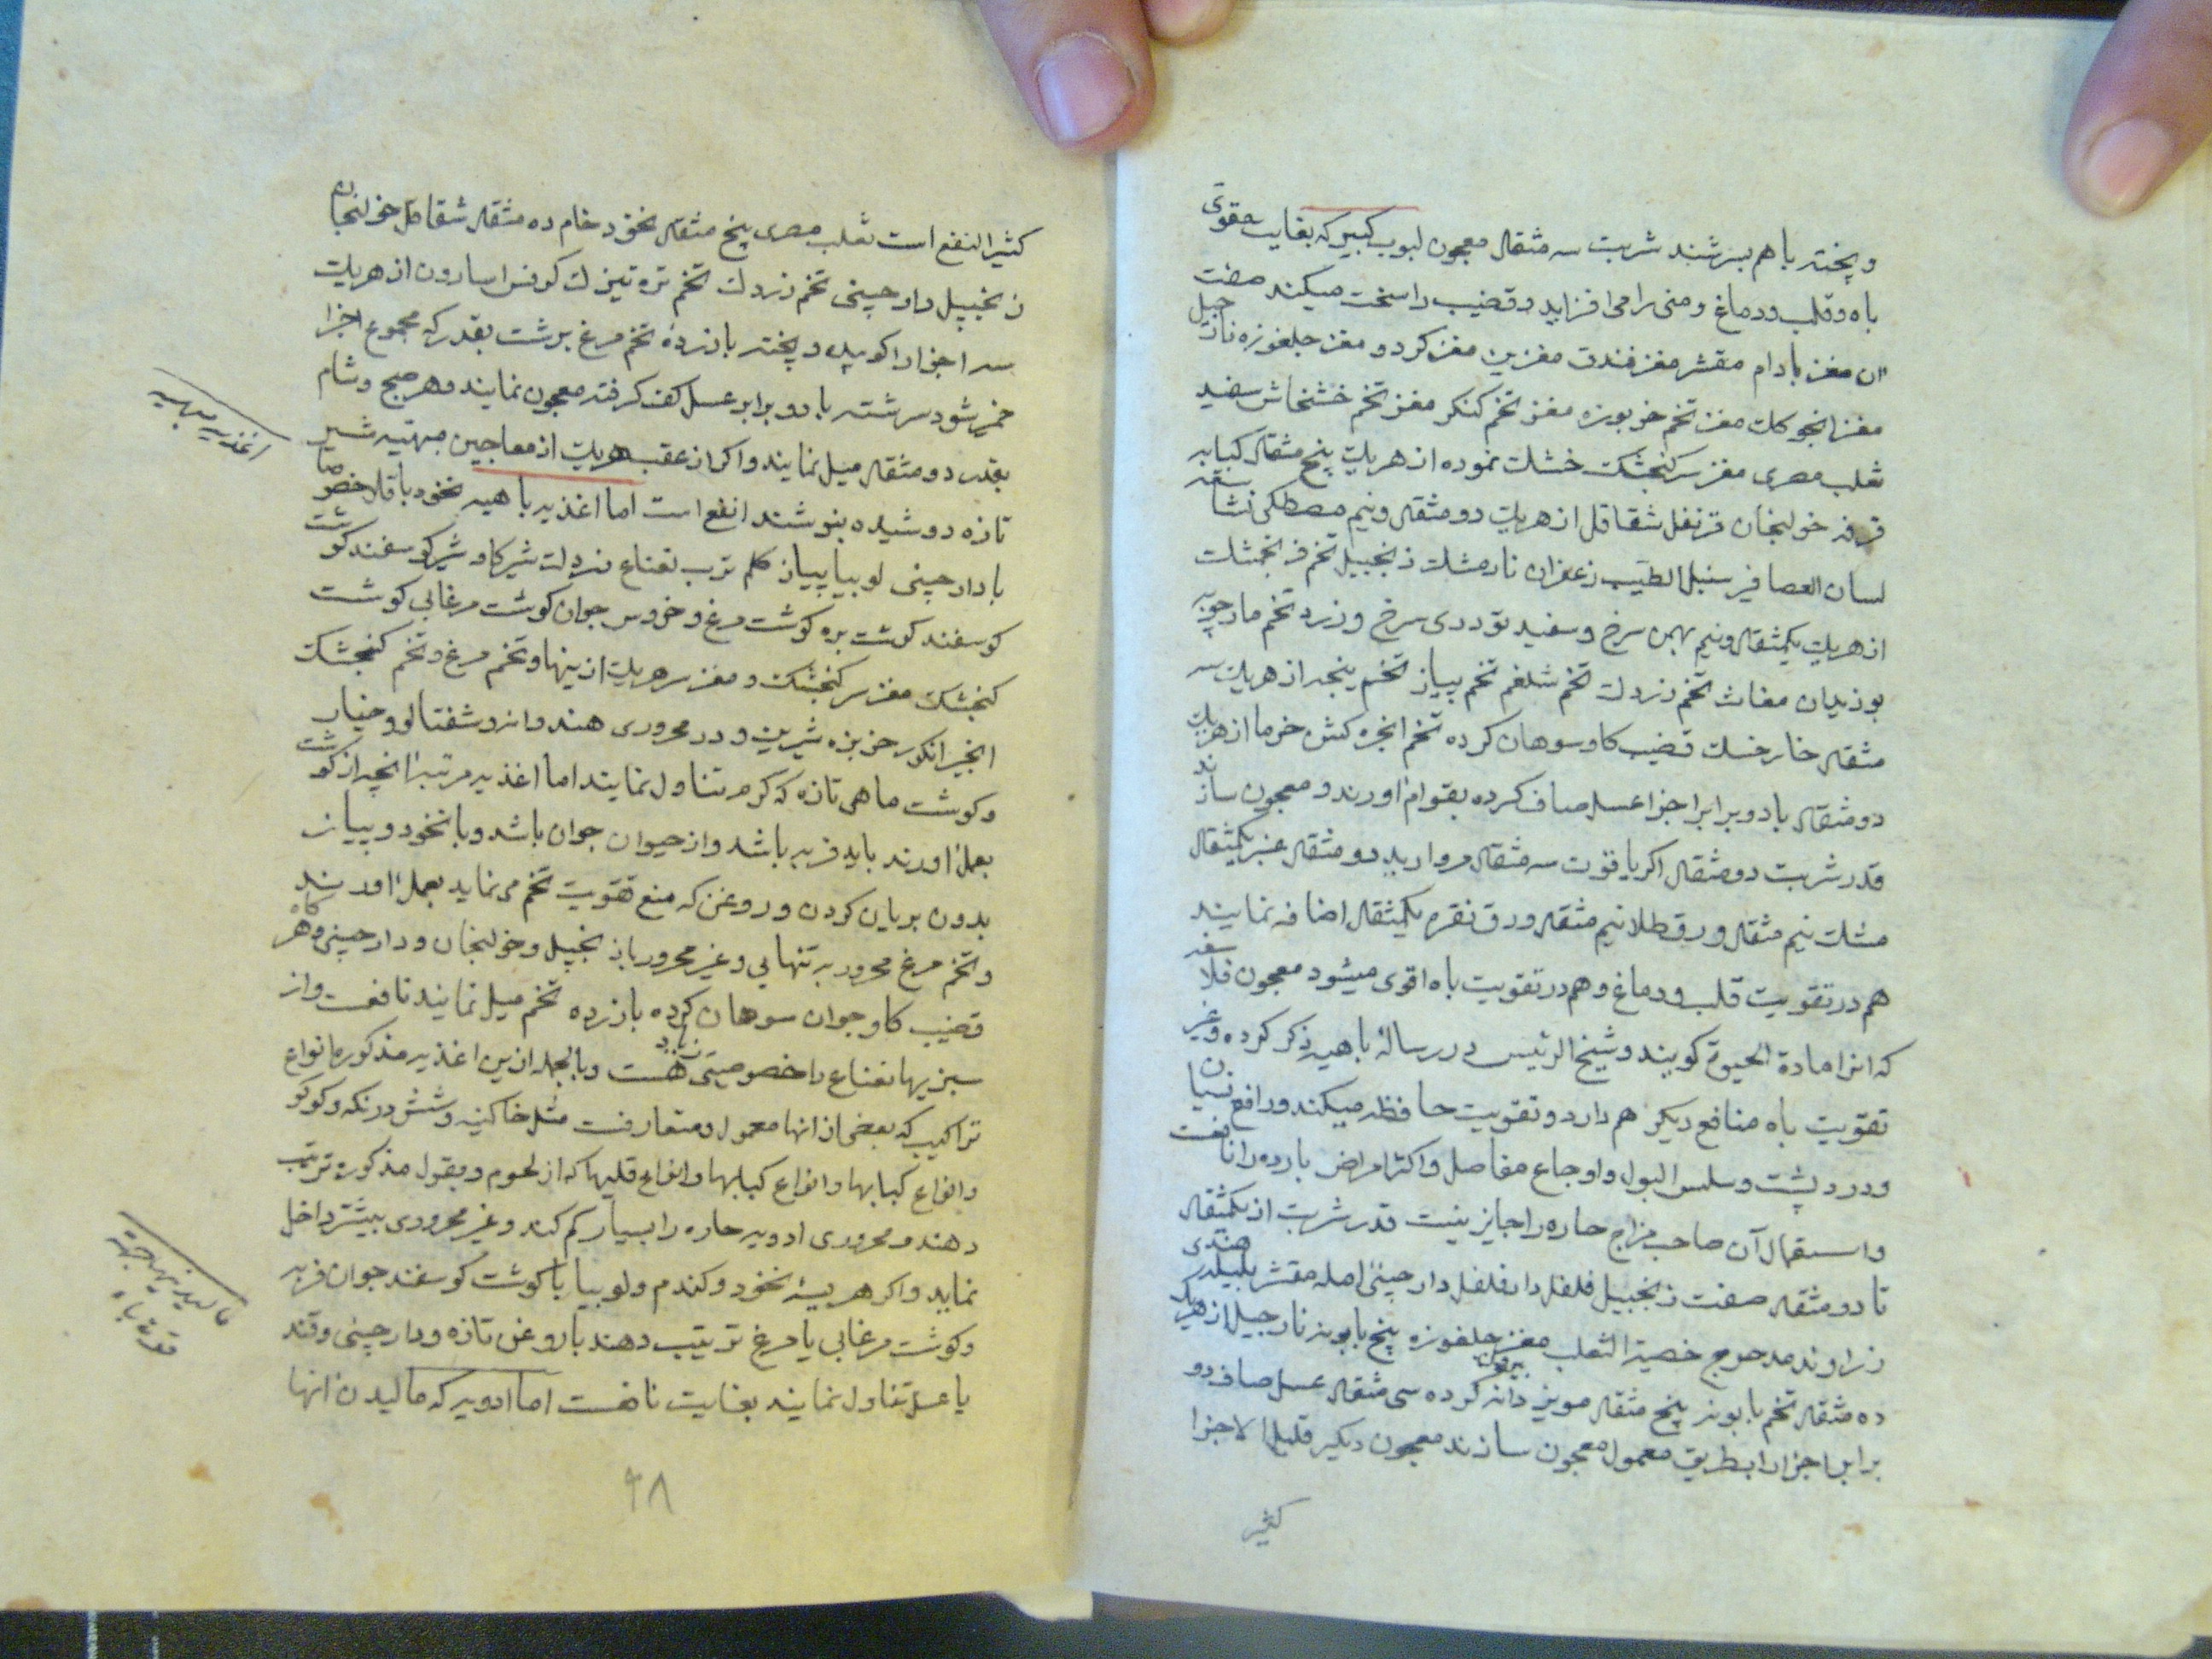 و پخته باهم بسرشند شربت سه مثقال معجون لبوب کبیر که بغایت مقوی
باه و قلب و دماغ و منی را می افزاید و قضیب را سخت میکند صفت
ان مغز بادام مقشر مغز فندق مغز بن مغز کردو مغز جلغوزه نارجیل
مغز انجوکک مغز تخم خربوزه مغز تخم کنکر مغز تخم خشخاش سفید
ثعلب مصری مغز سر کنجشک خشک نموده از هریک پنج مثقال کبابه
قرفه خولنجان قرنفل شقاقل از هریک دو مثقال و نیم مصطکی بسفه
لسان العصافیر سنبل الطیب زعفران نارمشک زنجبیل تخم فنجمشک
از هریک یکمثقال و نیم بهمن سرخ و سفید توددی سرخ و زرد تخم مارچوبه
بوزیدان مغاث تخم زردک تخم شلغم تخم پیاز تخم ینجه از هریک سه
مثقال خارخسک قضیب کاو سوهان کرده تخم انجره کش خرما از هریک
دو مثقال با دو برابر اجزا عسل صاف کرده بقوام اورند و معجون سازند
قدر شربت دو مثقال اکر یاقوت سه مثقال مروارید دو مثقال عنبر یکمثقال
مشک نیم مثقال ورق طلا نیم مثقال ورق نقره یکمثقال اضافه نمایند
هم در تقویت قلب و دماغ و هم در تقویت باه اقوی میشود معجون فلاسفه
که انرا مادة الحیوة کویند و شیخ الرئیس در رسالۀ باهیه ذکر کرده و غیر
تقویت باه منافع دیکر هم دارد و تقویت حافظه میکند و رافع نسیان
و درد پشت و سلس البول و اوجاع مفاصل و اکثر امراض بارده را نافعست
و استعمال آن صاحب مزاج حاره را جایز نیست قدر شربت از یکمثقال
تا دو مثقال صفت زنجبیل فلفل دارفلفل دارچینی امله مقشر هندی
زراوند مدحرج خصیة الثعلب مغز جلغوزه بیخ بابونه نارجیل از هریک
ده مثقال تخم بابونه پنج مثقال مویز دانه بیرون کرده سی مثقال عسل صاف دو
برابر اجزا را بطریق معمول معجون سازند معجون دیکر قلیل الاجزا
کثیر
کثیر النفع است ثعلب مصری پنج مثقال نخود خام ده مثقال شقاقل خولنجان
زنجبیل دارچینی تخم زردک تخم تره تیزک کرفس اسارون از هریک
سه اجزا را کوبیده و پخته با زردۀ تخم مرغ برشت بقدر که مجموع اجزا
خمیر شود سرشته با دو برابر عسل کف کرفته معجون نمایند و هر صبح و شام
بقدر دو مثقال میل نمایند و اکر از عقب هریک از معاجین مبهیه شیر
تازه دوشیده بنوشند انفع است اما اغذیه باهیه نخود باقلا خصوصا
با دارچینی لوبیا پیاز کلم ترب نعناع زردک شیر کاو شیر کوسفند کوشت
کوسفند کوشت بره کوشت مرغ و خروس جوان کوشت مرغابی کوشت
کنجشک مغز سر کنجشک و مغز سر هریک ازینها و تخم مرغ و تخم کنجشک
انجیر انکور خربزه شیرین و در محروری هندوانه و شفتالو و خیار
و کوشت ماهی تازه که کرم تناول نمایند اما اغذیه مرتبۀ انچه از کوشت
بعمل اورند باید فربه باشد و از حیوان جوان باشد و با نخود و پیاز
بدون بریان کردن و روغن که منع تقویت تخم می نماید بعمل اورند
و تخم مرغ محرور به تنهایی و غیر محرور با زنجبیل و خولنجان و دارچینی و هرکاه
قضیب کاو جوان سوهان کرده با زرده تخم میل نمایند نافعست و از
سبزیها نعناع را خصوصیتی زیاد هست و بالجمله ازین اغذیه مذکوره انواع
تراکیب که بعضی از انها معمول و متعارفست مثل خاکینه و شش درنکه و کوکو
و انواع کبابها و انواع کبابها و انواع قلیها که از لحوم و بقول مذکوره ترتیب
دهند و محروری ادویه حاره را بسیار کم کند و غیر محروری بیشتر داخل
نماید و اکر هریسۀ نخود و کندم و لوبیا با کوشت کوسفند جوان فربه
و کوشت مرغابی یا مرغ ترتیب دهند با روغن تازه و دارچینی و قند
یا عسل تناول نمایند بغایت نافعست اما ادویه که مالیدن انها
اغذیه مبهیه
مالیدنیها جهة
قوة باه
۴۸